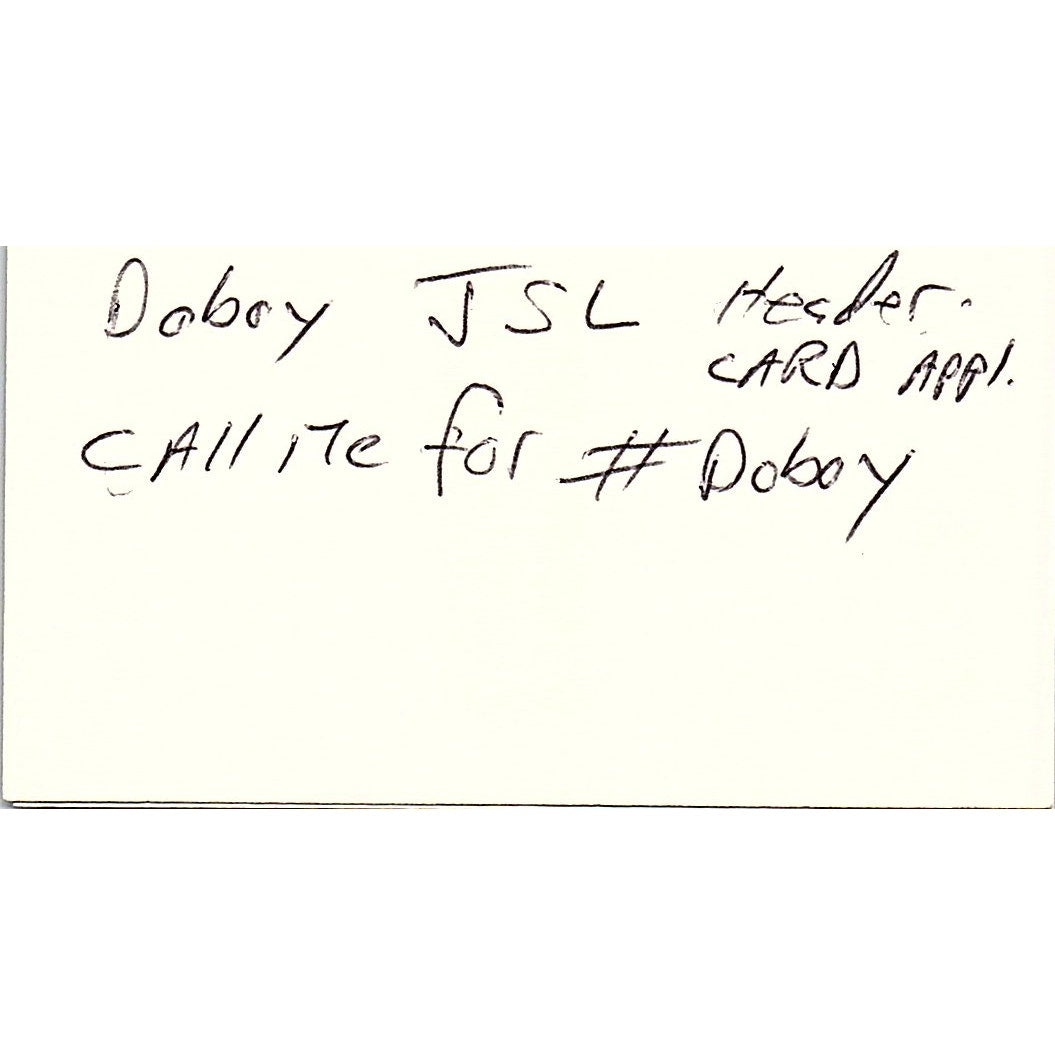 Doboy JSL Header.
CARD APPl.
CAll Me for # Doboy